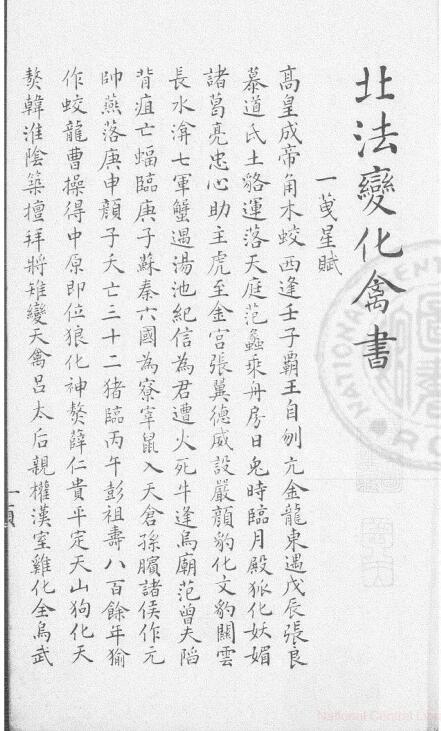 北法變化禽書
一莫星賦
高皇成帝角木蛟西逢壬子霸王自刎亢金龍東遇戊辰張良
慕道氐土貉運落天庭范蠡乘舟房日兔時臨月殿狐化妖媚
諸葛亮忠心助主虎至金宮張翼德威設嚴顏豹化文豹關雲
長水渰七軍蟹遇湯池紀信為君遭火死牛逢烏廟范曾夫陷
背疽亡蝠臨庚子蘇秦六國為寮宰鼠入天倉孫臏諸侯作元
帥燕落庚申顏子夭亡三十二猪臨丙午彭祖壽八百餘年㺄
作蛟龍曹操得中原即位狼化神獒薛仁貴平定天山狗化天
獒韓淮陰築壇拜將雉變天禽呂太后親權漢室雞化金烏武
National Central Lib